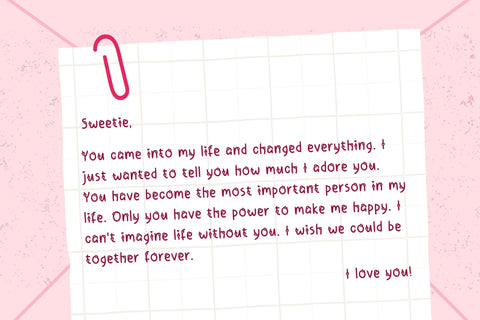 Sweetie,
You came into my life and changed everything. I
just wanted to tell you how much I adore you.
You have become the most important person in my
life. Only you have the power to make me happy. I
can't imagine life without you. I wish we could be
together forever.
I love you!